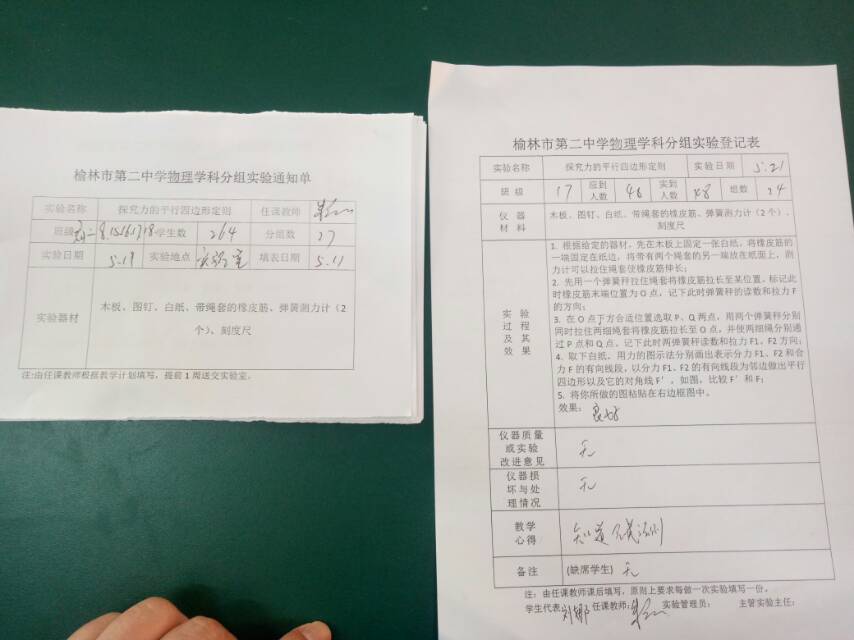 榆林市第二中学物理学科分组实验通知单
实验名称 探究力的平行四边形定则 任课教师
班级 高二8.15.16.17.18 学生数 264 分组数 27
实验日期 5.19 实验地点 实验室 填表日期 5.11
实验器材 木板、图钉、白纸、带绳套的橡皮筋、弹簧测力计(2
个)、刻度尺
注:由任课教师根据教学计划填写,提前1周送交实验室。
榆林市第二中学物理学科分组实验登记表
实验名称 探究力的平行四边形定则 实验日期 5.21
班级 17 应到人数 48 实到人数 48 组数 24
仪器材料 木板、图钉、白纸、带绳套的橡皮筋、弹簧测力计(2个)、
刻度尺
实验过程及其效果
1. 根据给定的器材,先在木板上固定一张白纸,将橡皮筋的
一端固定在纸边,将带有两个绳套的另一端放在纸面上,测
力计可以拉住绳套使橡皮筋伸长;
2. 先用一个弹簧秤拉住绳套将橡皮筋拉长至某位置,标记此
时橡皮筋末端位置为O点,记下此时弹簧秤的读数和拉力F
的方向;
3. 在O点下方合适位置选取P、Q两点,用两个弹簧秤分别
同时拉住两细绳套将橡皮筋拉长至O点,并使两细绳分别通
过P点和Q点,记下此时两弹簧秤读数和拉力F1、F2方向;
4. 取下白纸,用力的图示法分别画出表示分力F1、F2和合
力F的有向线段,以分力F1、F2的有向线段为邻边做出平行
四边形以及它的对角线F′,如图,比较F′和F;
5. 将你所做的图粘贴在右边框图中。
效果: 良好
仪器质量或实验改进意见 无
仪器损坏与处理情况 无
教学心得 知道
备注 (缺席学生) 无
注:由任课教师课后填写,原则上要求每做一次实验填写一份。
学生代表:刘娜 任课教师: 实验管理员: 主管实验主任: